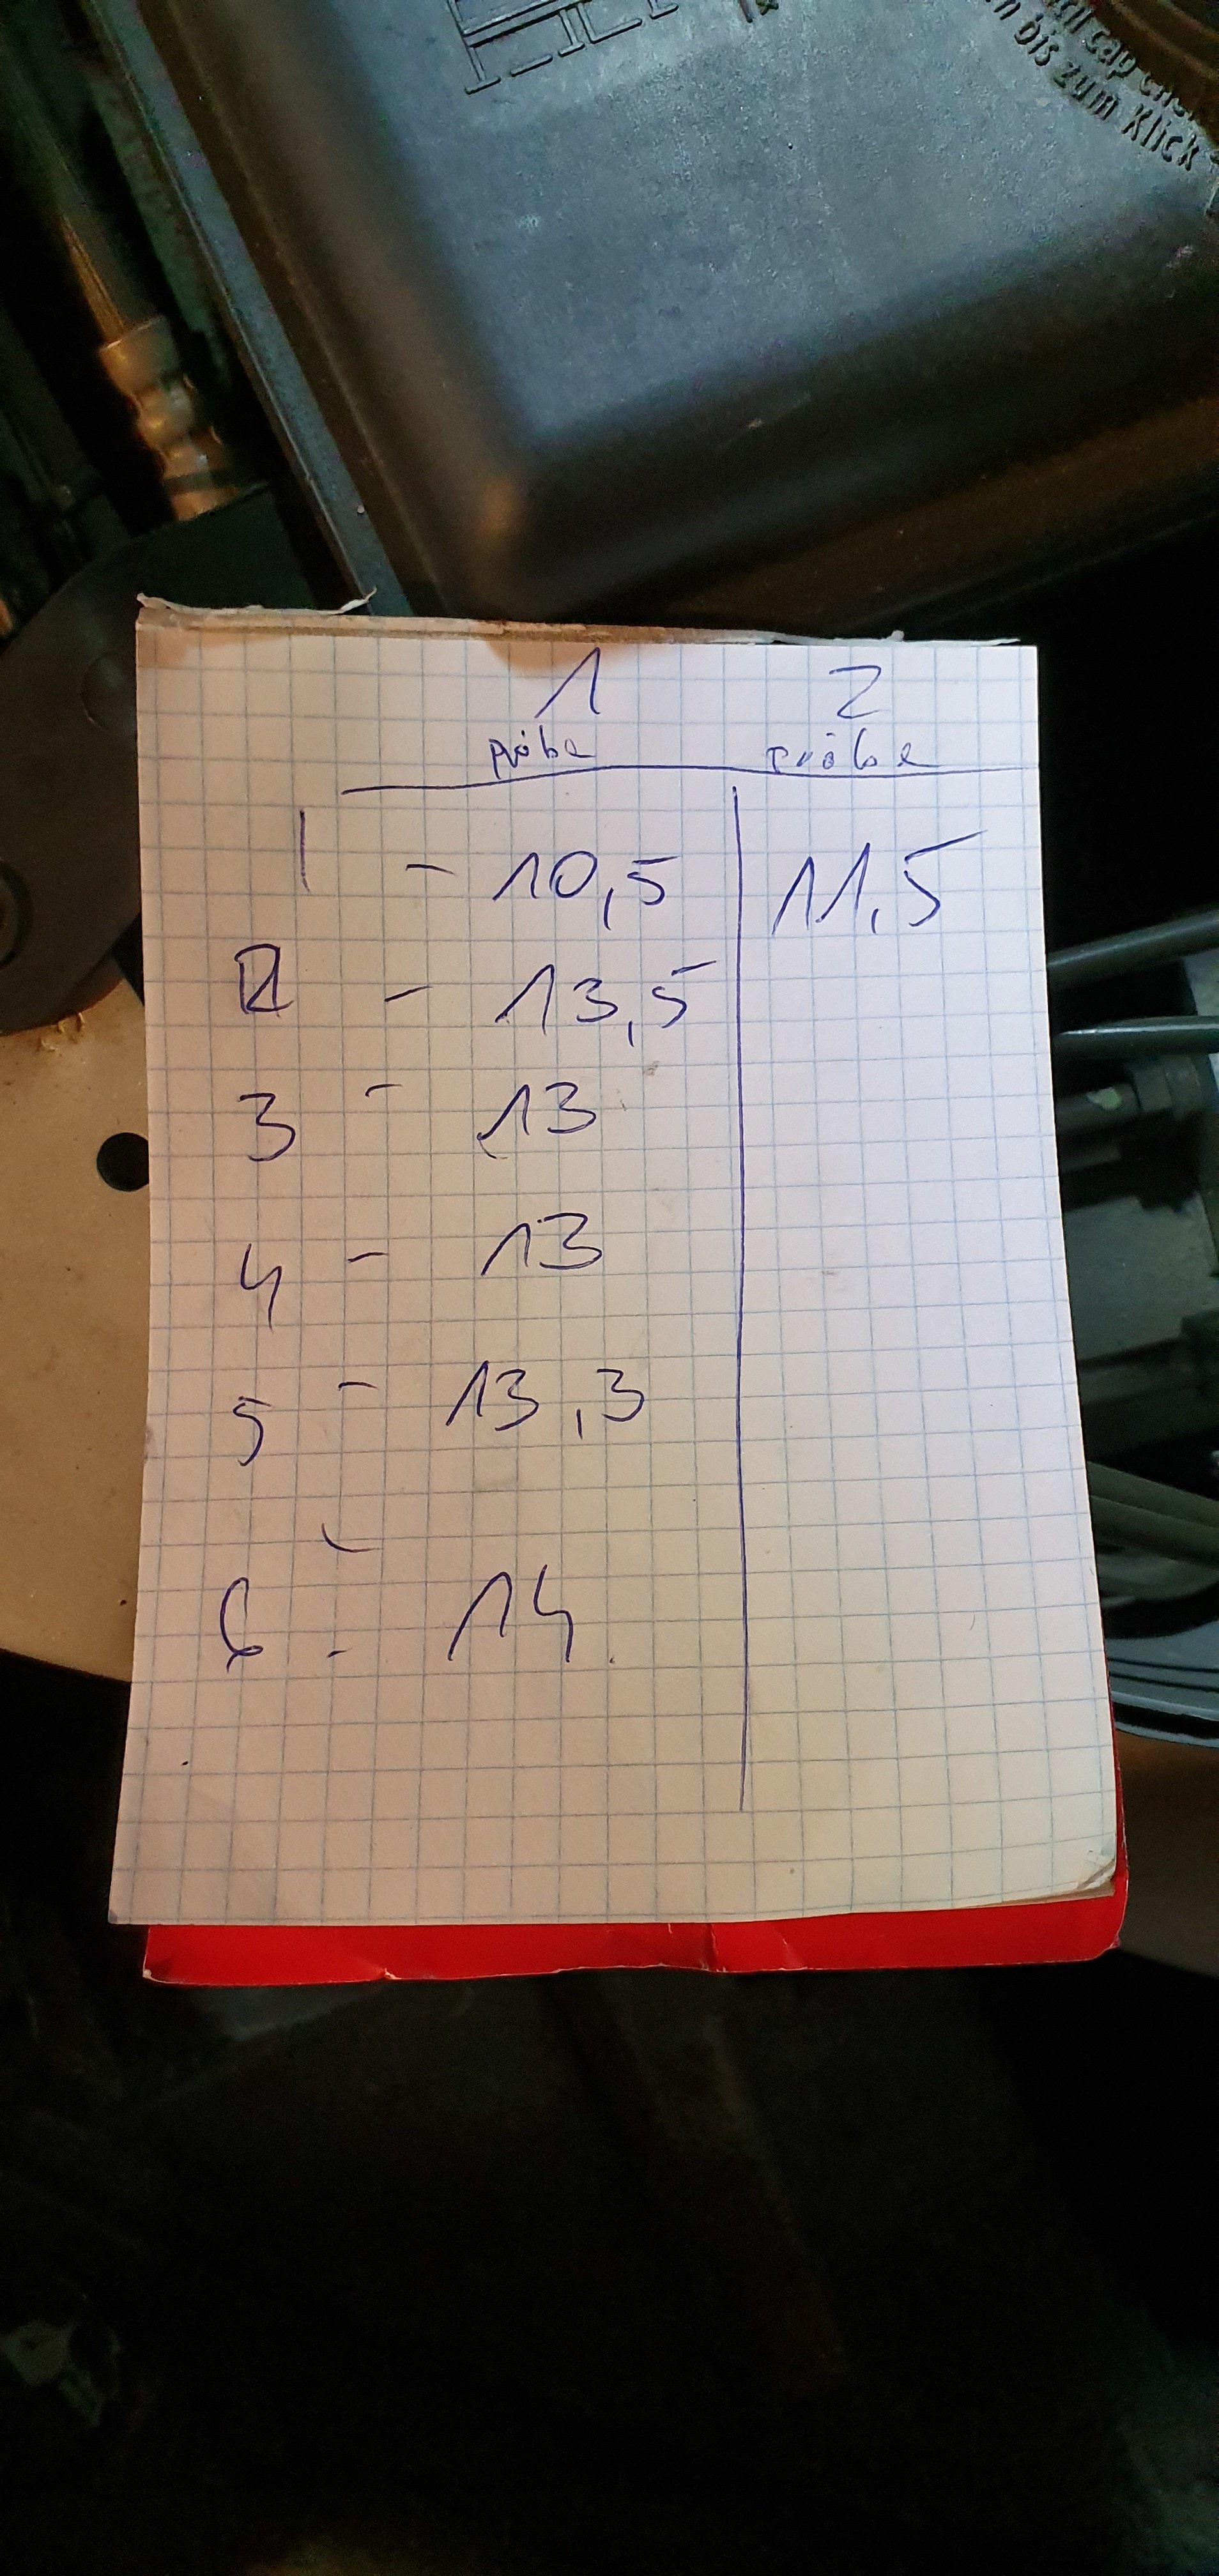 cap
bis zum Klick
1 2
próba próba
1 - 10,5 11,5
2 - 13,5
3 - 13
4 - 13
5 - 13,3
6 - 14.